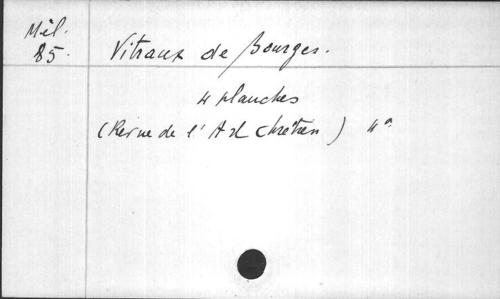 Mél.
85. Vitraux de Bourges.
4 planches
(Revue de l'Art chrétien) 4°